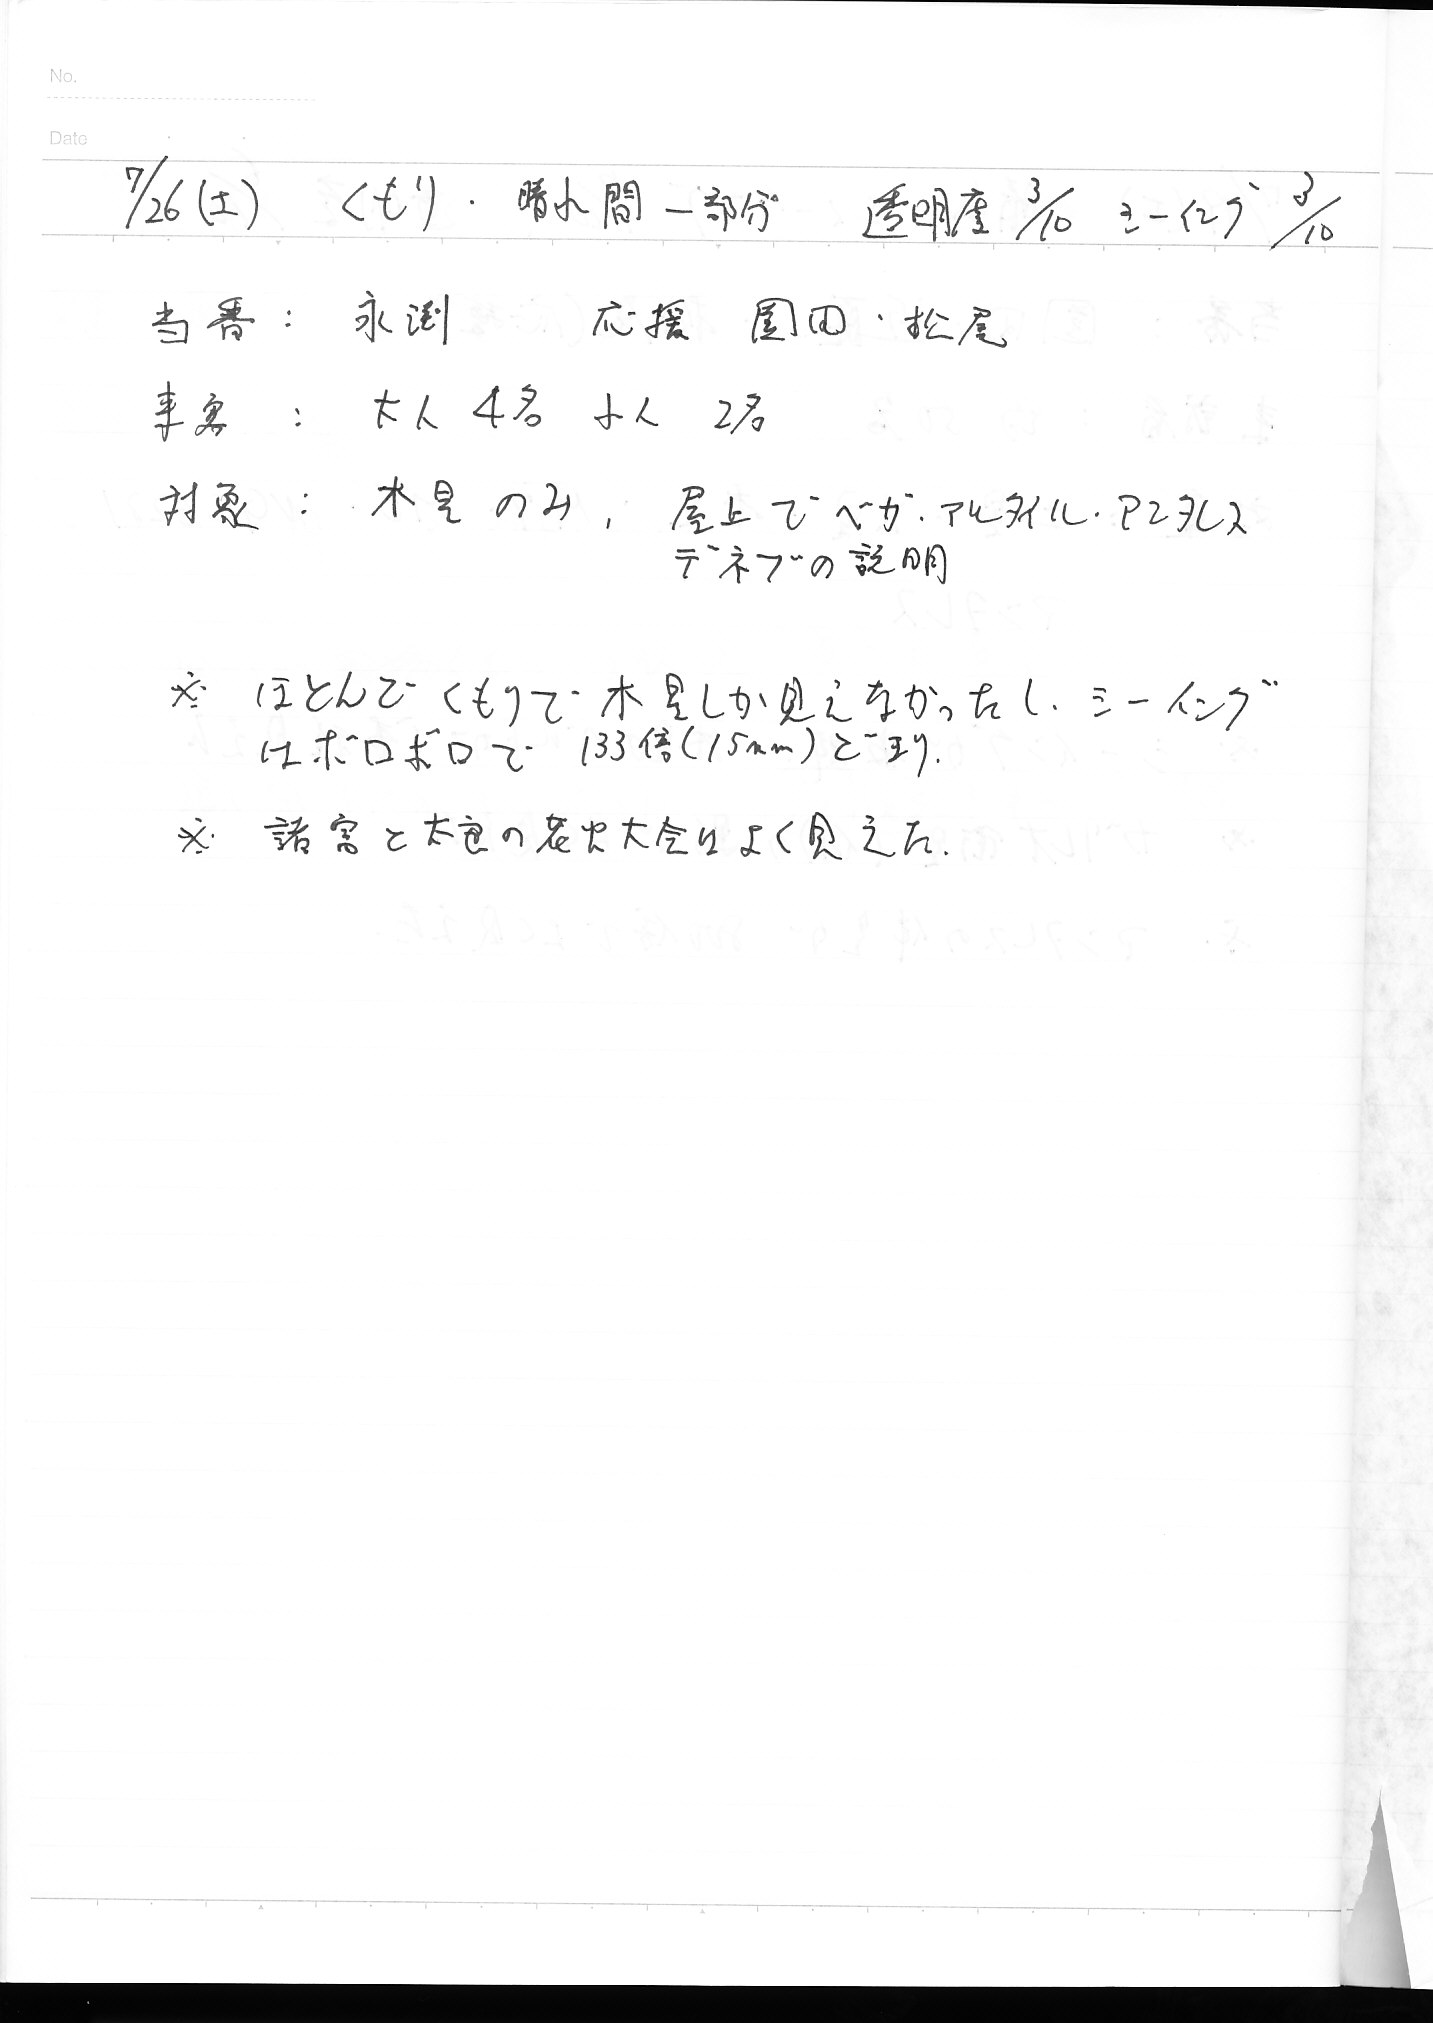 No.
Date
7/26(土) くもり・晴れ間一部分 透明度 3/10 シーイング 3/10
当番: 永渕 応援 園田・松尾
来客: 大人 4名 小人 2名
対象: 木星のみ, 屋上でベガ・アルタイル・アンタレス
デネブの説明
※ ほとんどくもりで木星しか見えなかったし、シーイング
はボロボロで 133倍(15mm)どまり.
※ 諸富と太良の花火大会はよく見えた.